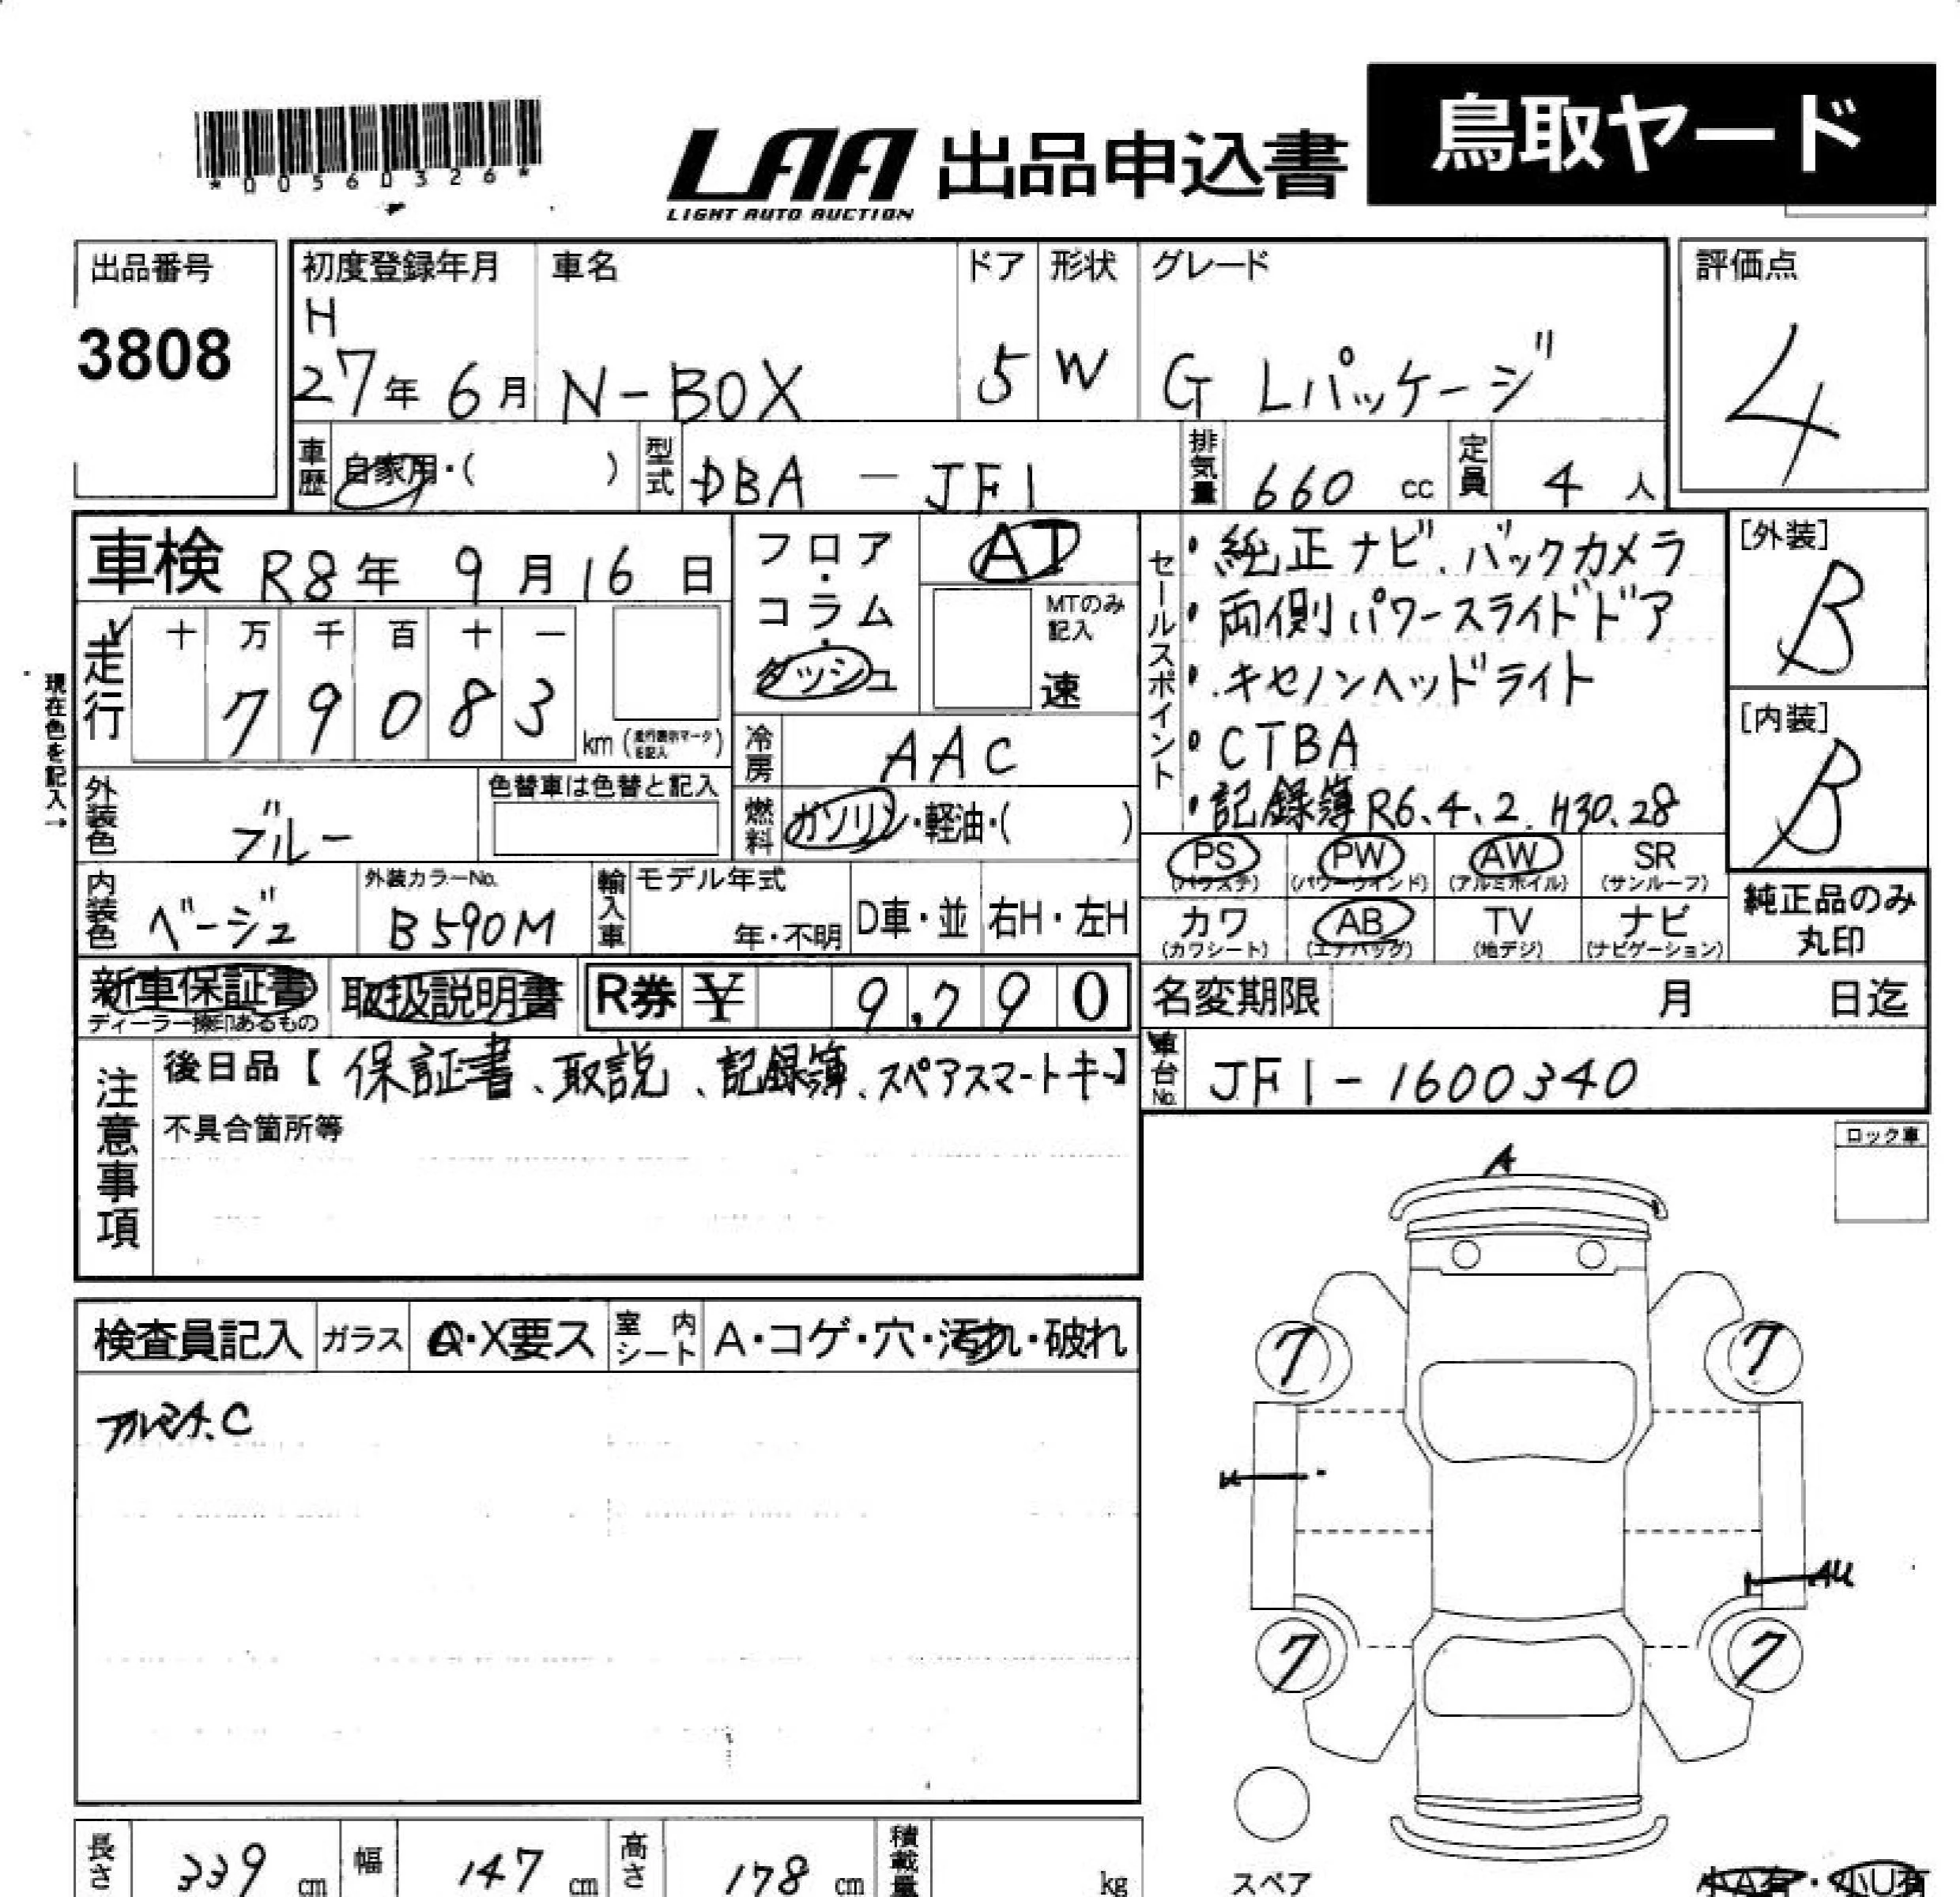 *00560326*
LAA 出品申込書 鳥取ヤード
LIGHT AUTO AUCTION
出品番号 初度登録年月 車名 ドア 形状 グレード 評価点
3808 H 27年 6月 N-BOX 5 W G Lパッケージ 4
車歴 自家用・( ) 型式 DBA - JF1 排気量 660 cc 定員 4 人
車検 R8年 9月16日
フロア・コラム・ダッシュ AT
MTのみ記入 速
セールスポイント
・純正ナビ.バックカメラ
・両側パワースライドドア
・キセノンヘッドライト
・CTBA
・記録簿R6.4.2.H30.28
[外装] B
[内装] B
現在色を記入→
走行 十 万 千 百 十 一
7 9 0 8 3 km (走行表示マークを記入)
冷房 AAC
外装色 ブルー 色替車は色替と記入
燃料 ガソリン・軽油・( )
PS (パワステ) PW (パワーウインド) AW (アルミホイル) SR (サンルーフ)
カワ (カワシート) AB (エアバッグ) TV (地デジ) ナビ (ナビゲーション)
純正品のみ丸印
内装色 ベージュ 外装カラーNo. B590M 輸入車 モデル年式 年・不明 D車・並 右H・左H
新車保証書 ディーラー捺印あるもの 取扱説明書 R券 ¥ 9,790
名変期限 月 日迄
注意事項 後日品【保証書、取説、記録簿、スペアスマートキー】
車台No. JF1-1600340
不具合箇所等
ロック車
A
検査員記入 ガラス A・X要ス 室内シート A・コゲ・穴・汚れ・破れ
アルミA.C
7 7
U
AU
7 7
長さ 339 cm 幅 147 cm 高さ 178 cm 積載量 kg
スペア
小A有・小U有